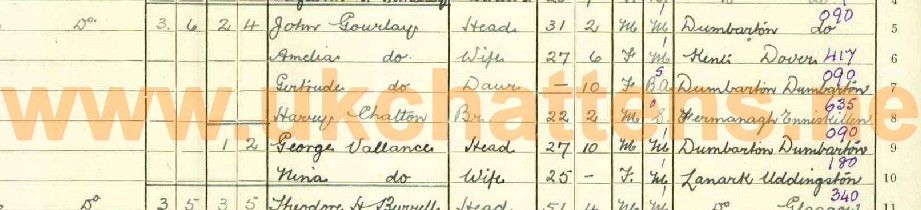 Do. 3 6 2 4 John Gourlay Head 31 2 M M Dumbarton do 090 5
Amelia do. Wife 27 6 F M Kent Dover 417 6
Gertrude do Daur — 10 F Dumbarton Dumbarton 090 7
Harry Chatton Br. 22 2 M S Fermanagh Enniskillen 635 8
1 2 George Vallance Head 27 10 M M Dumbarton Dumbarton 090 9
Nina do Wife 25 – F. M Lanark Uddingston 180 10
Do 3 5 3 5 Theodore H Burrell Head 51 4 M M Do Glasgow 340 11
www.ukchattens.